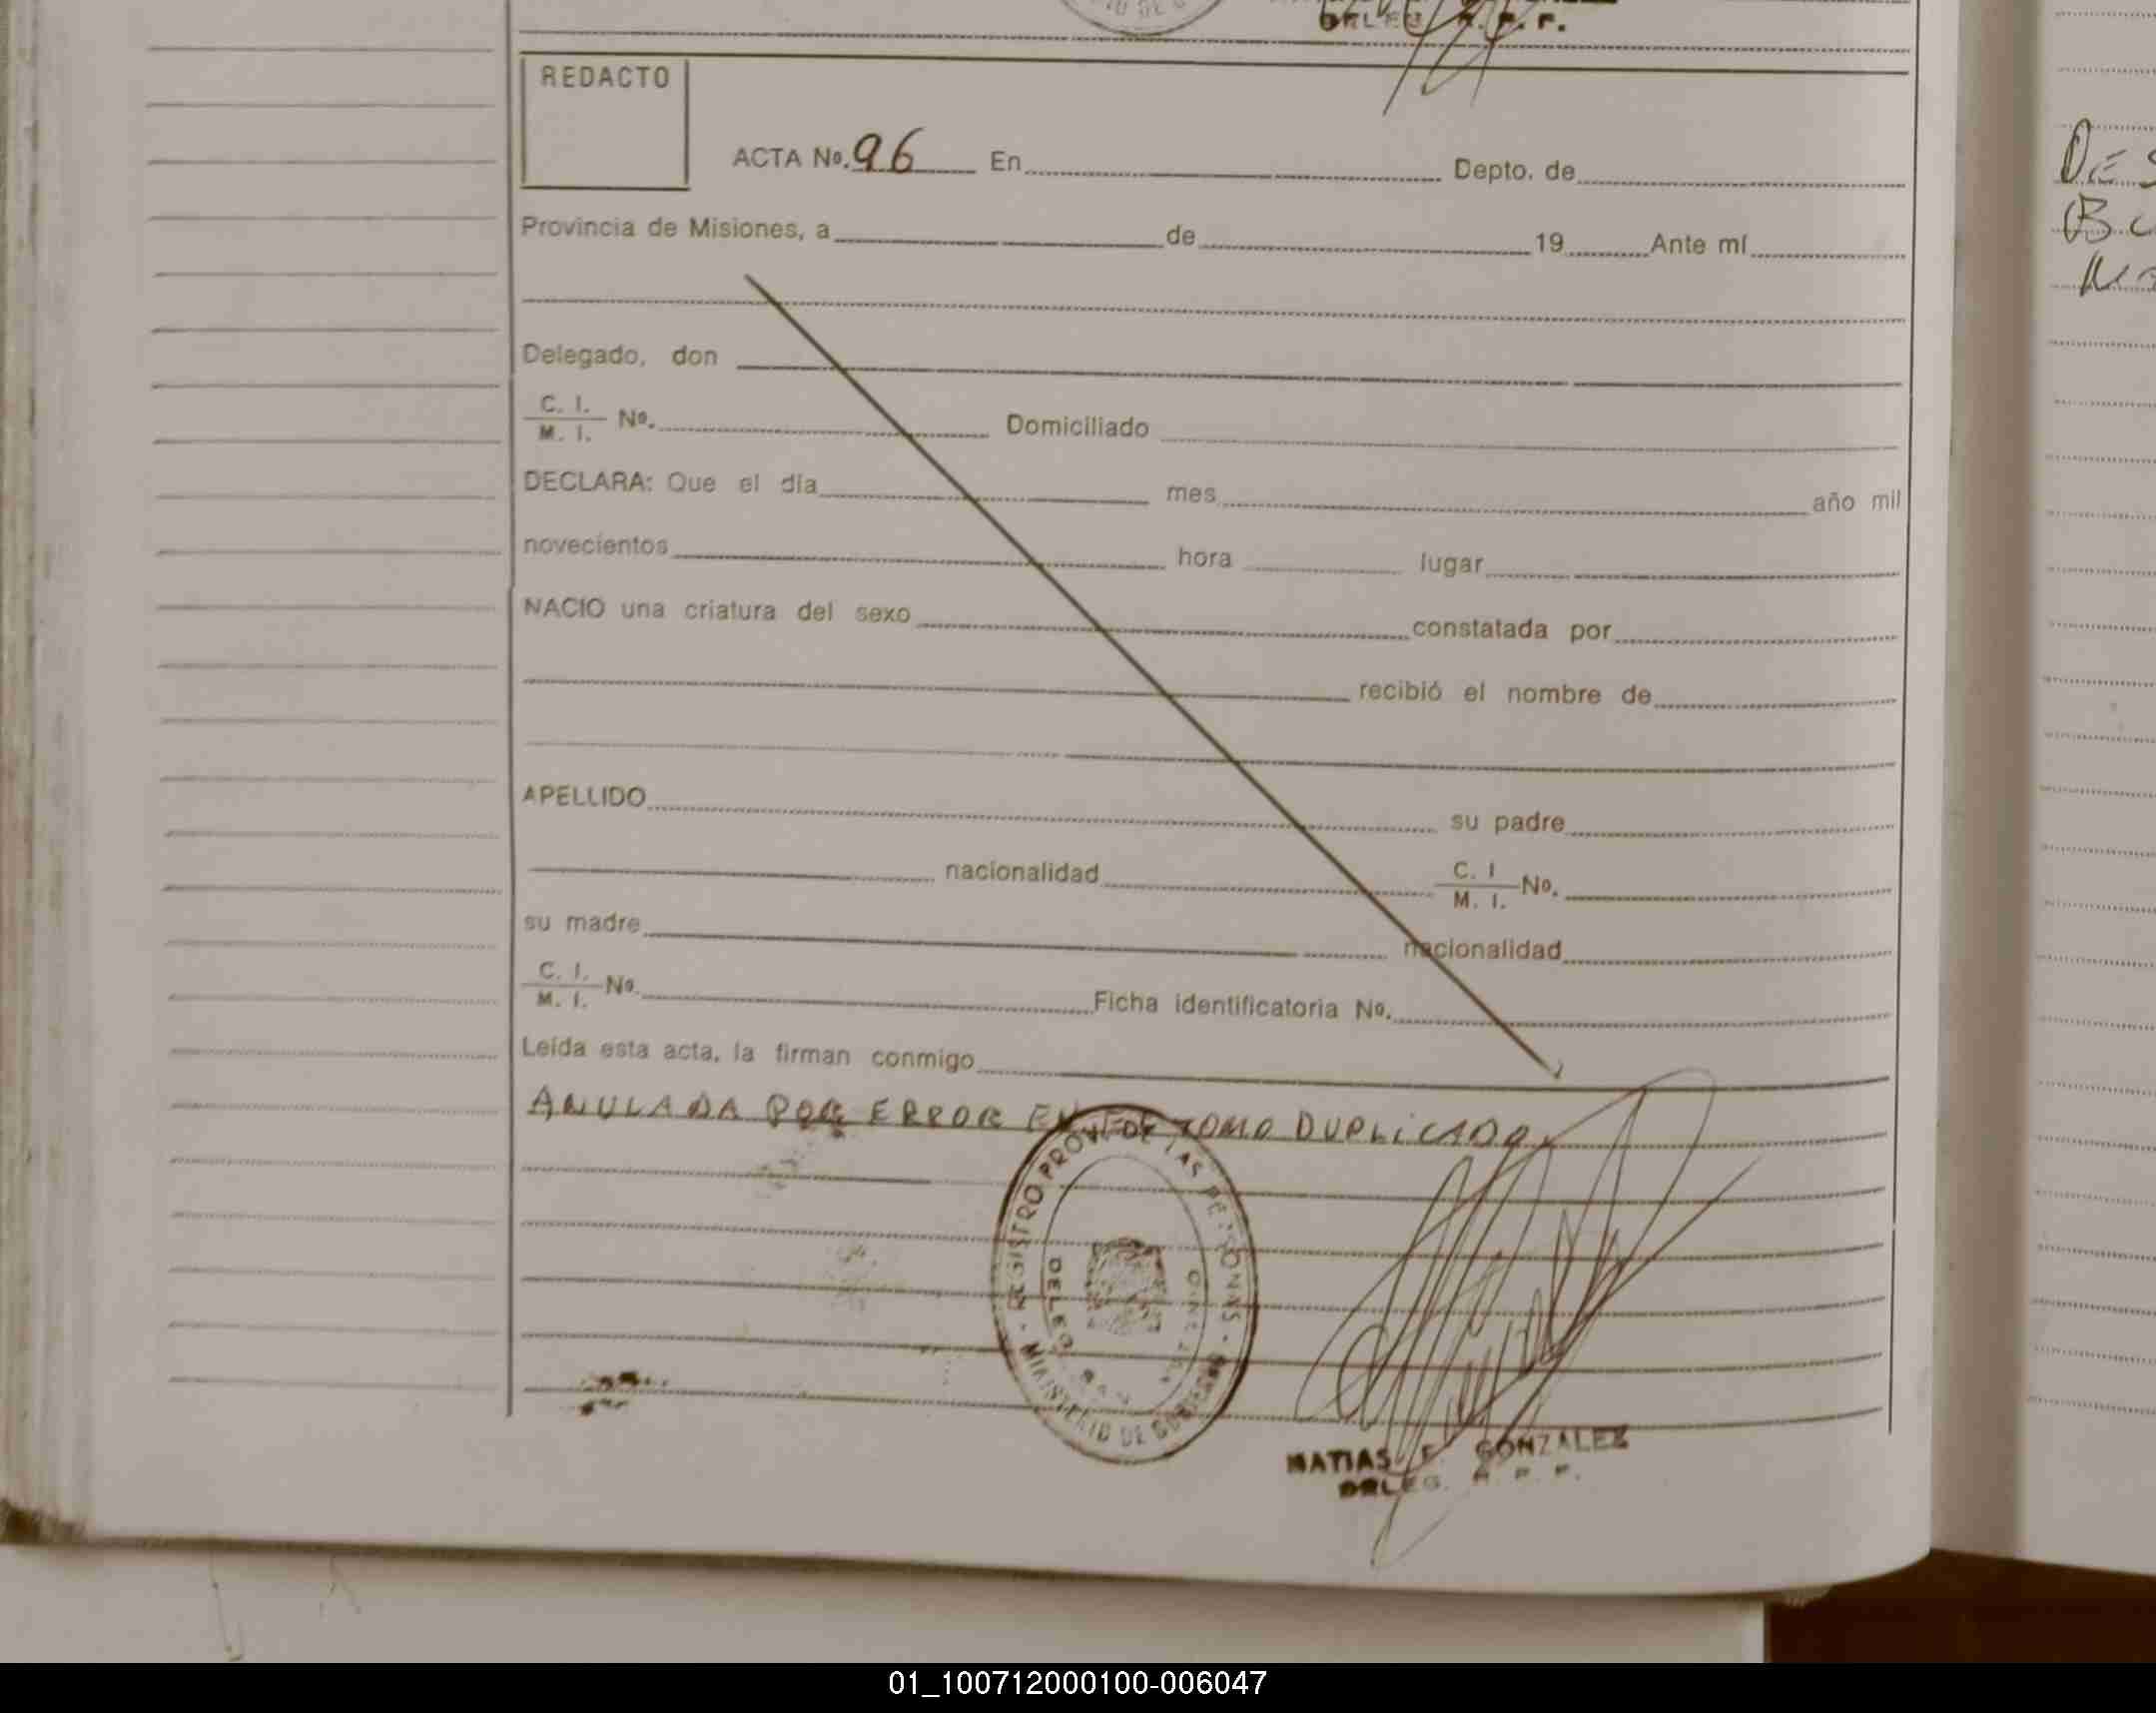 DELEG. R. P. P.
REDACTO
ACTA Nº. 96 En Depto. de
Provincia de Misiones, a de 19 Ante mí
Delegado, don
C. I.
M. I. Nº. Domiciliado
DECLARA: Que el día mes año mil
novecientos hora lugar
NACIO una criatura del sexo constatada por
recibió el nombre de
APELLIDO su padre
nacionalidad C. I
M. I. Nº.
su madre nacionalidad
C. I.
M. I. Nº. Ficha identificatoria Nº.
Leída esta acta, la firman conmigo
ANULADA POR ERROR EN EL TOMO DUPLICADO
REGISTRO PROV. DE LAS PERSONAS - MINISTERIO DE GOBIERNO
MATIAS F. GONZALEZ
DELEG. R. P. P.
DES
01_100712000100-006047